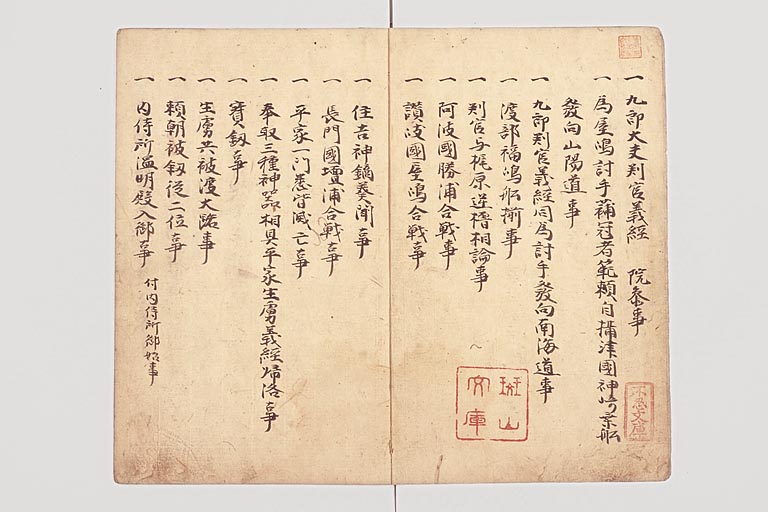 一 九郎大夫判官義経 院参事
一 為屋嶋討手蒲冠者範頼自摂津國神崎乗舩
發向山陽道事
一 九郎判官義經同為討手發向南海道事
一 渡部福嶋舩揃事
一 判官与梶原逆櫓相論事
一 阿波國勝浦合戦事
一 讃岐國屋嶋合戦事
一 住吉神鏑奏聞事
一 長門國壇浦合戦事
一 平家一門悉皆滅亡事
一 奉取三種神器相具平家生虜義經帰洛事
一 寶釼事
一 生虜共被渡大路事
一 頼朝被釼従二位事
一 内侍所温明殿入御事 付内侍所御始事
斑山文庫